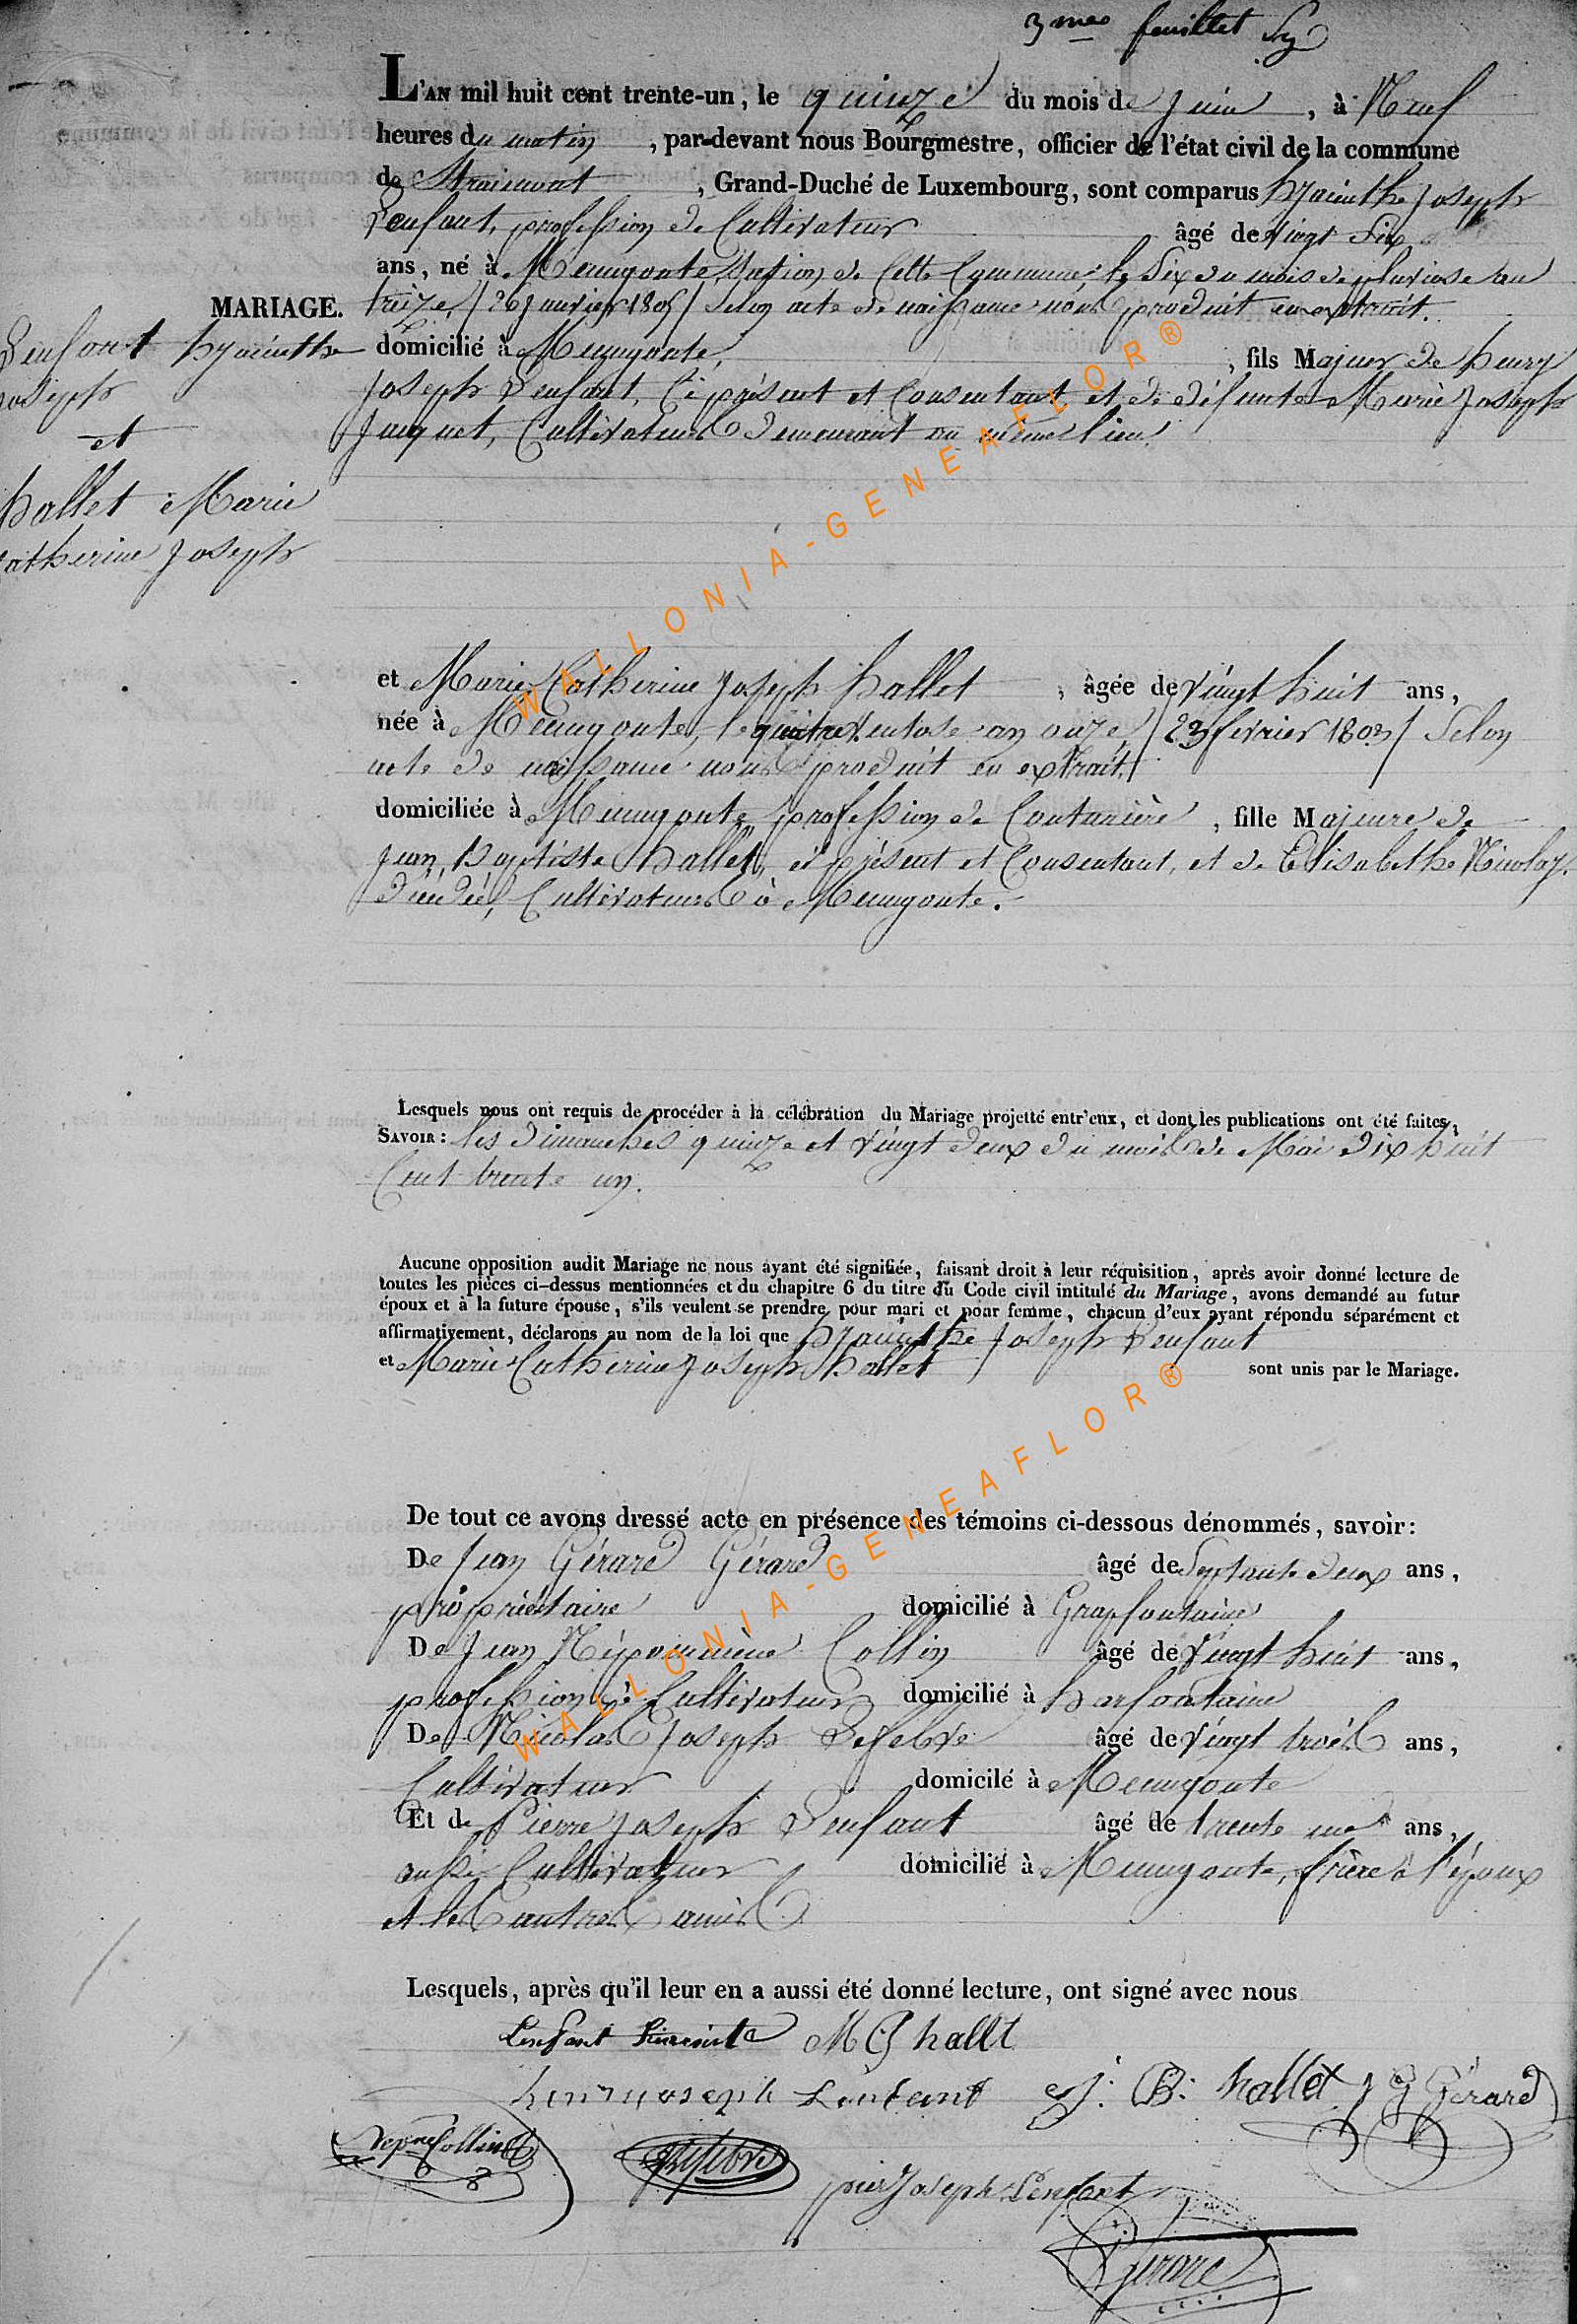 3me feuillet
L'AN mil huit cent trente-un, le quinze du mois de Juin, à Neuf
heures du matin, par-devant nous Bourgmestre, officier de l'état civil de la commune
de Straimont, Grand-Duché de Luxembourg, sont comparus hyacinthe Joseph
Lenfant, profession de Cultivateur âgé de vingt Six
ans, né à Menugoute, Section de Cette Commune, le Six du mois de pluviose an
treize, / 26 Janvier 1805 / Selon acte de naissance nous produit en extrait.
MARIAGE.
Lenfant hyacinthe
Joseph
et
hallet Marie
Catherine Joseph
domicilié à Menugoute, fils Majeur de henry
Joseph Lenfant, Ci présent et Consentant et de défunte Marie Joseph
Jaquet, Cultivateurs demeurant au même lieu
et Marie Catherine Joseph hallet, âgée de vingt huit ans,
née à Menugoute, le quatre Ventose an onze / 23 fevrier 1803 / Selon
acte de naissance nous produit en extrait,
domiciliée à Menugoute profession de Couturière, fille Majeure de
Jean Baptiste hallet, ci présent et Consentant, et de Elisabethe Nicolay,
décédée, Cultivateurs à Menugoute.
Lesquels nous ont requis de procéder à la célébration du Mariage projetté entr'eux, et dont les publications ont été faites,
SAVOIR: les dimanches quinze et vingt deux du mois de Mai dix huit
Cent trente un.
Aucune opposition audit Mariage ne nous ayant été signifiée, faisant droit à leur réquisition, après avoir donné lecture de
toutes les pièces ci-dessus mentionnées et du chapitre 6 du titre du Code civil intitulé du Mariage, avons demandé au futur
époux et à la future épouse, s'ils veulent se prendre pour mari et pour femme, chacun d'eux ayant répondu séparément et
affirmativement, déclarons au nom de la loi que hyacinthe Joseph Lenfant
et Marie Catherine Joseph hallet sont unis par le Mariage.
De tout ce avons dressé acte en présence des témoins ci-dessous dénommés, savoir:
De Jean Gérard Gérard âgé de Septante deux ans,
propriétaire domicilié à Grapfontaine
De Jean Népomucène Collin âgé de vingt huit ans,
profession de Cultivateur domicilié à harfontaine
De Nicolas Joseph Lefebve âgé de vingt trois ans,
Cultivateur domicilé à Menugoute
Et de Pierre Joseph Lenfant âgé de trente un ans,
aussi Cultivateur domicilié à Menugoute, frère à l'époux
et les autres amis
Lesquels, après qu'il leur en a aussi été donné lecture, ont signé avec nous
Lenfant M C J hallt
henry joseph Lenfant J: B: hallet J G Gérard
Nepne Collin Lefebve pier Joseph Lenfant
Gerard
WALLONIA-GENEAFLOR®
WALLONIA-GENEAFLOR®